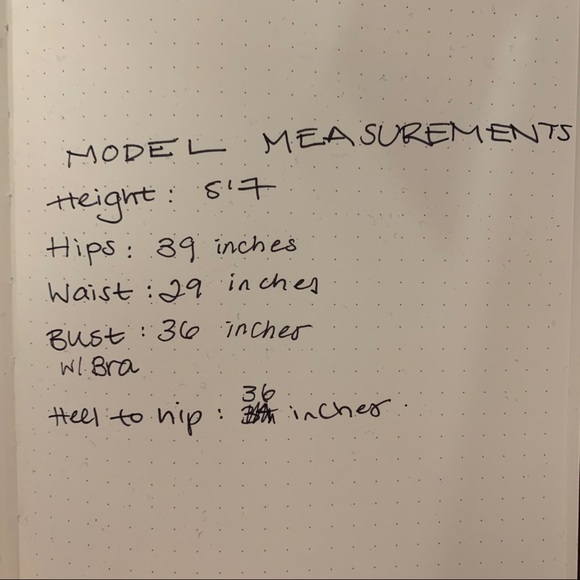 MODEL MEASUREMENTS
Height: 5'7
Hips: 39 inches
Waist: 29 inches
Bust: 36 inches
w/ Bra
36
Heel to hip: inches